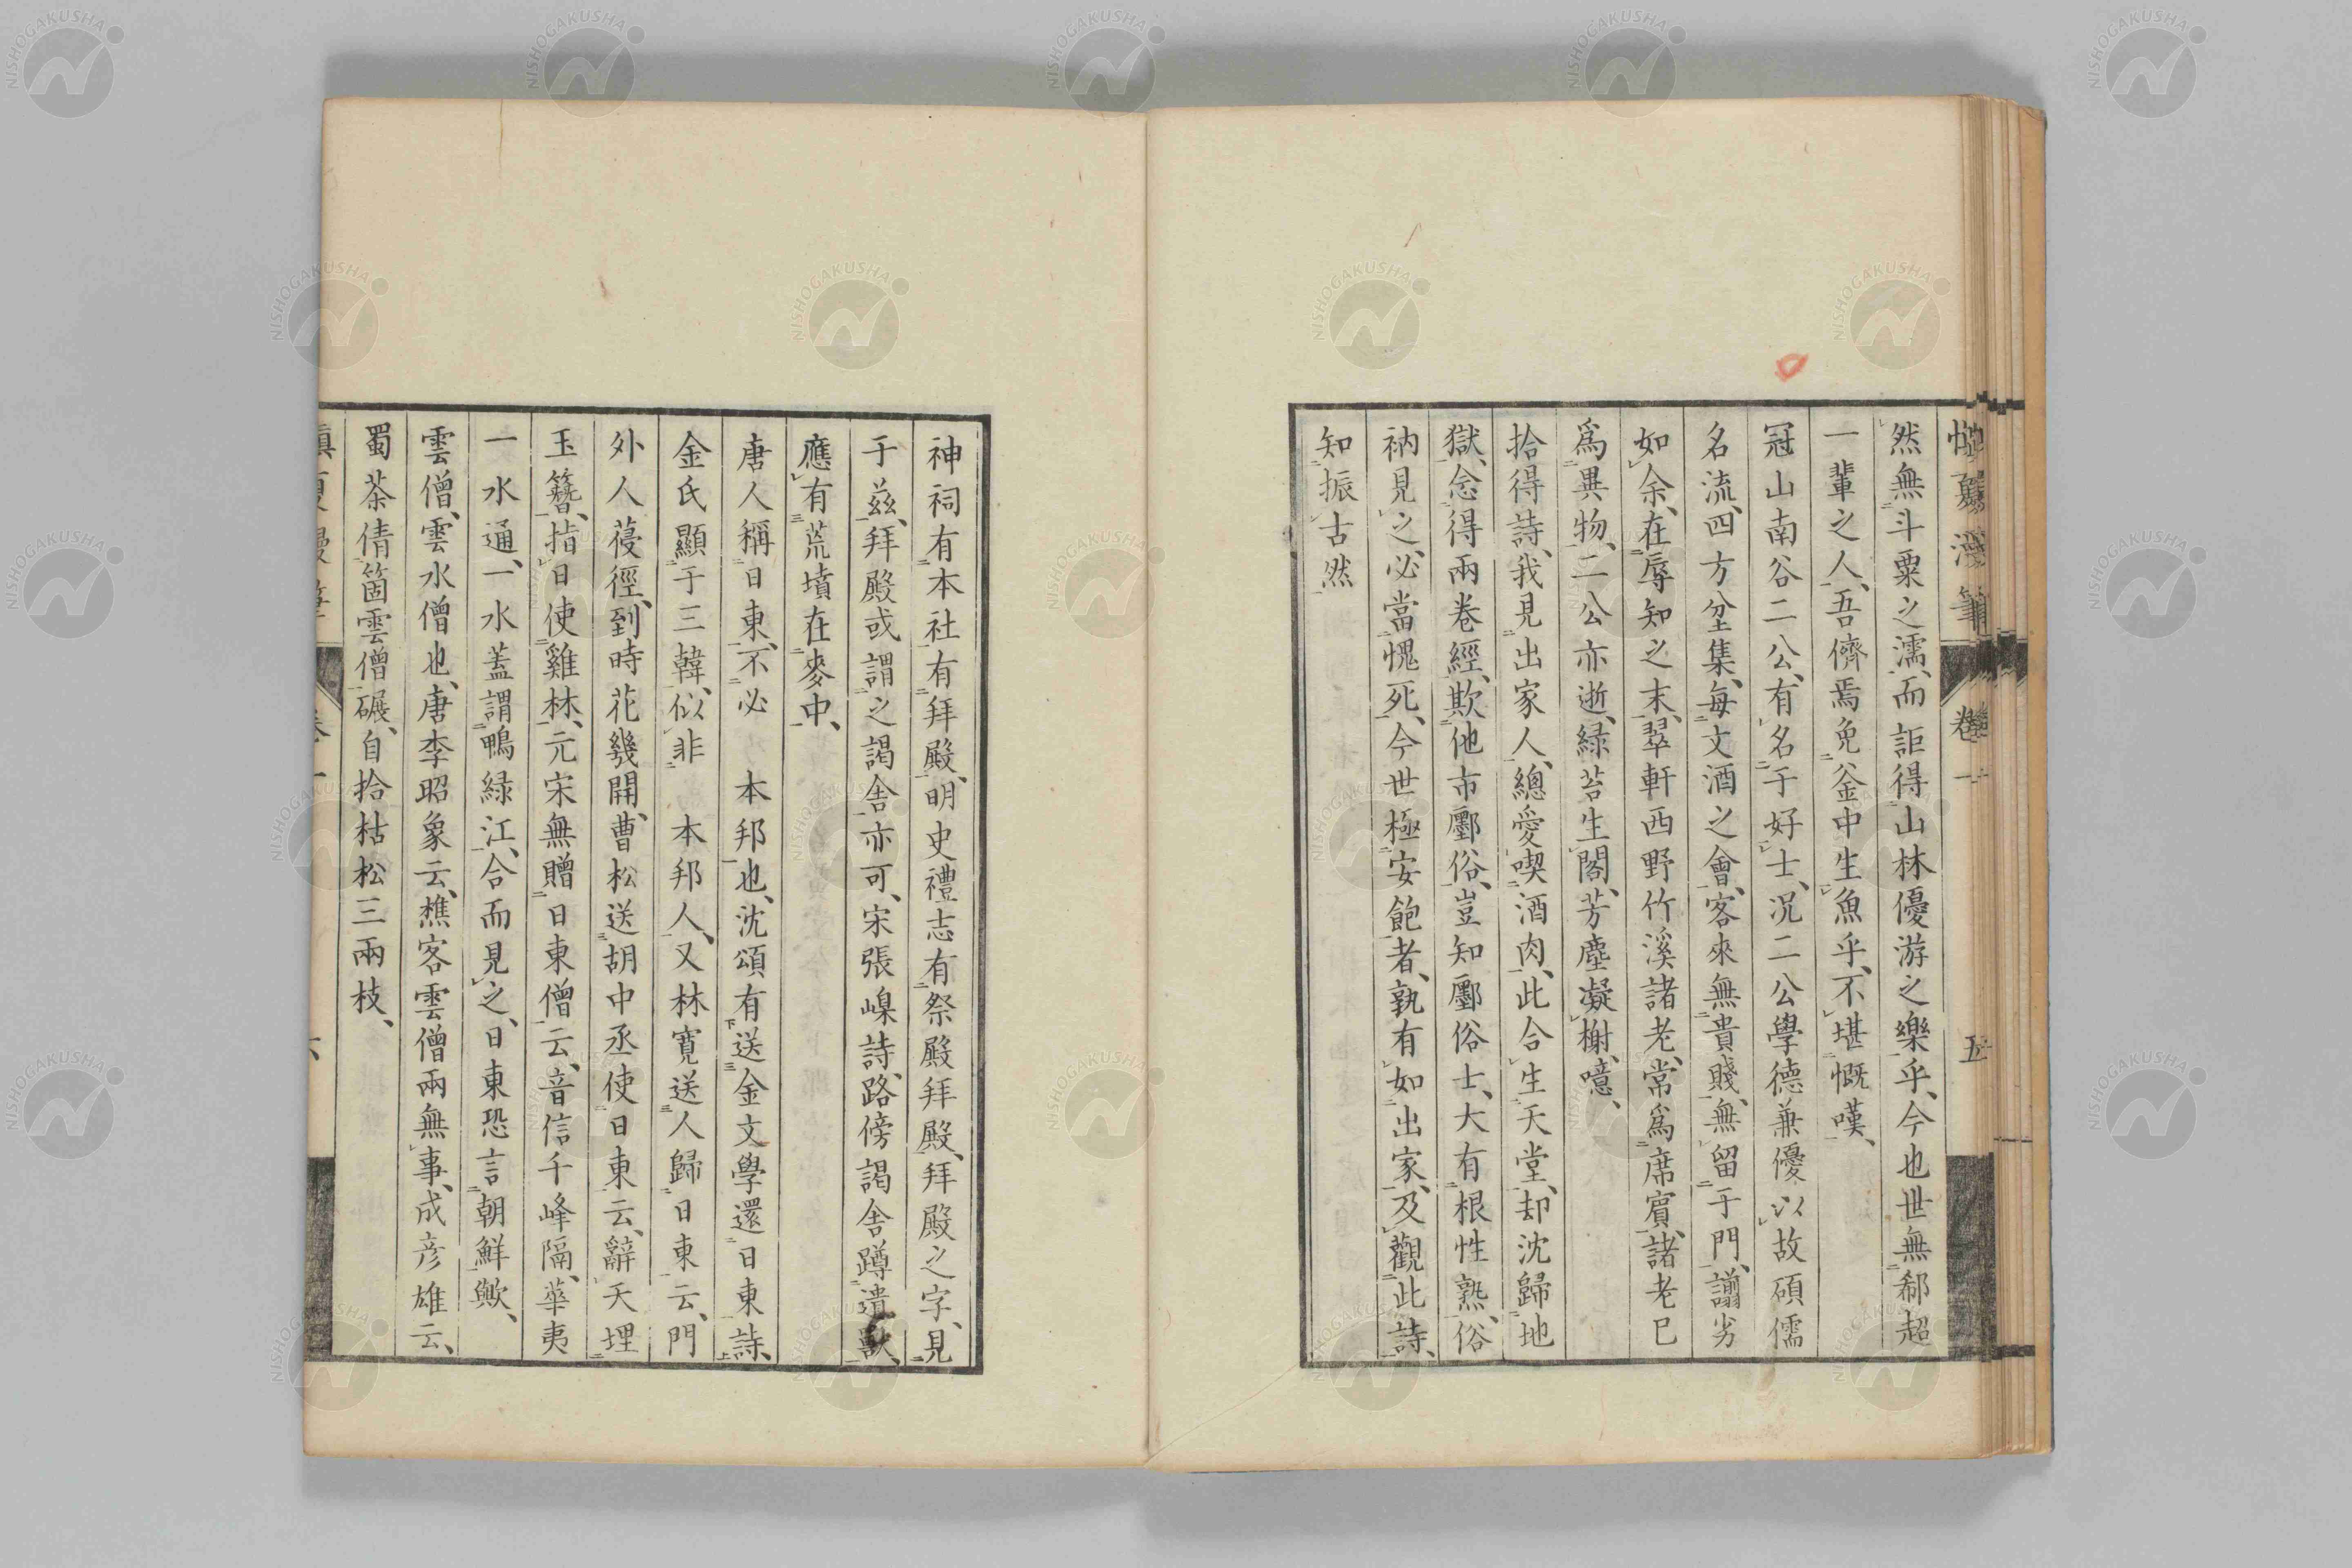 然無斗粟之濡、而詎得山林優游之樂乎、今也世無郗超
一輩之人、吾儕焉免釜中生魚乎、不堪慨嘆、
冠山南谷二公、有名于好士、况二公學德兼優、以故碩儒
名流、四方坌集、每文酒之會、客來無貴賤、無留于門、譾劣
如余、在辱知之末、翠軒西野竹溪諸老、常爲席賓、諸老已
爲異物、二公亦逝、緑苔生閣、芳塵凝榭、噫、
拾得詩、我見出家人、總愛喫酒肉、此合生天堂、却沈歸地
獄、念得兩卷經、欺他市鄽俗、豈知鄽俗士、大有根性熟、俗
衲見之、必當愧死、今世極安飽者、孰有如出家、及觀此詩、
知振古然
卷一
五
神祠有本社、有拜殿、明史禮志有祭殿拜殿、拜殿之字、見
于茲、拜殿或謂之謁舍、亦可、宋張嵲詩、路傍謁舍蹲遺獸、
應有荒墳在麥中、
唐人稱日東、不必　本邦也、沈頌有送金文學還日東詩、
金氏顯于三韓、似非　本邦人、又林寬送人歸日東云、門
外人葠徑、到時花幾開、曹松送胡中丞使日東云、辭天埋
玉簪、指日使雞林、元宋無贈日東僧云、音信千峰隔、華夷
一水通、一水蓋謂鴨緑江、合而見之、日東恐言朝鮮歟、
雲僧、雲水僧也、唐李昭象云、樵客雲僧兩無事、成彥雄云、
蜀茶倩箇雲僧碾、自拾枯松三兩枝、
NISHOGAKUSHA